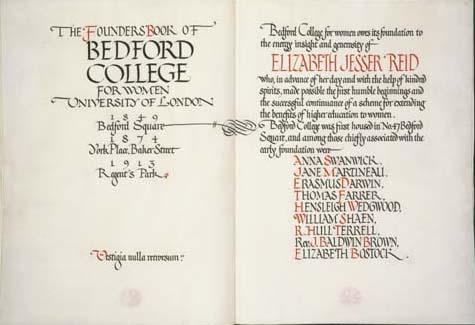 THE FOUNDERS BOOK OF
BEDFORD
COLLEGE
FOR WOMEN
UNIVERSITY OF LONDON
1849
Bedford Square
1874
York Place, Baker Street
1913
Regent's Park
Vestigia nulla retrorsum:
Bedford College for women owes its foundation to
the energy insight and generosity of
ELIZABETH JESSER REID
who, in advance of her day and with the help of kindred
spirits, made possible the first humble beginnings and
the successful continuance of a scheme for extending
the benefits of higher education to women.
Bedford College was first housed in No.47 Bedford
Square, and among those chiefly associated with the
early foundation were
ANNA SWANWICK,
JANE MARTINEAU,
ERASMUS DARWIN,
THOMAS FARRER,
HENSLEIGH WEDGWOOD,
WILLIAM SHAEN,
R. HULL TERRELL,
Rev. J. BALDWIN BROWN,
ELIZABETH BOSTOCK.